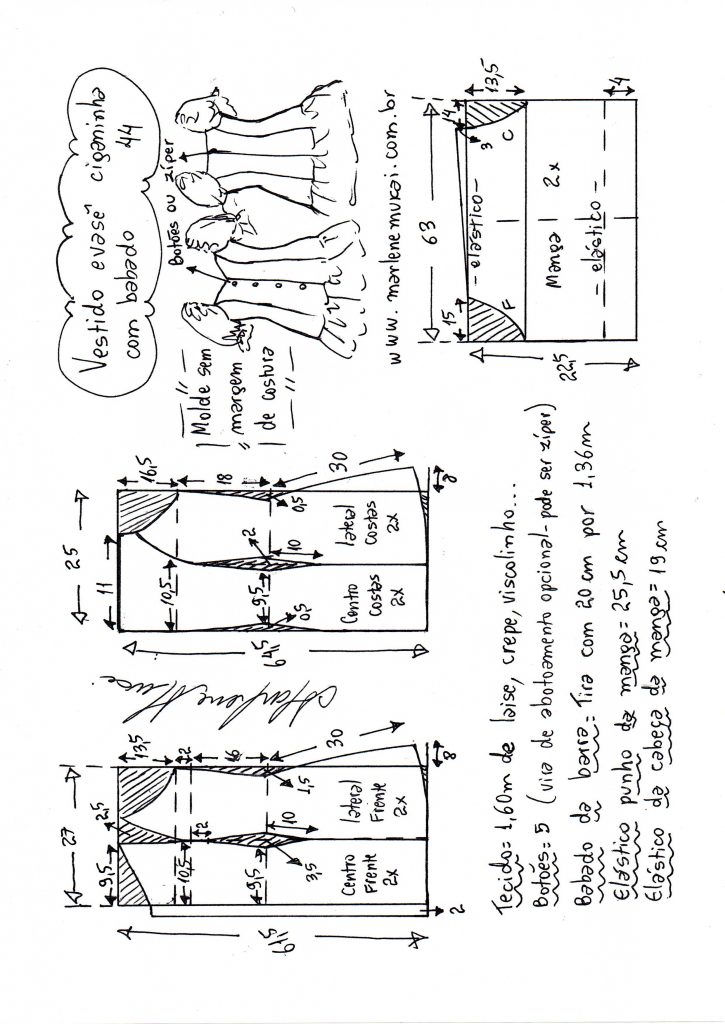 Vestido evasê ciganinha
com babado 44
Botões ou zíper
Molde sem
margem
de costura
www.marlenemukai.com.br
27
9,5
2,5
13,5
2
10,5
2
16
9,5
10
3,5
1,5
30
61,5
Centro
Frente
2x
lateral
Frente
2x
8
2
Marlene Mukai
25
11
16,5
10,5
18
9,5
2
10
0,5
0,5
30
64,5
Centro
Costas
2x
lateral
Costas
2x
8
63
15
4
3
13,5
- elástico -
F
C
Manga 2x
- elástico -
22,5
4
Tecido = 1,60m de laise, crepe, viscolinho...
Botões = 5 (vira de abotoamento opcional - pode ser zíper)
Babado da barra = Tira com 20 cm por 1,36m
Elástico punho da manga = 25,5 cm
Elástico da cabeça da manga = 19 cm